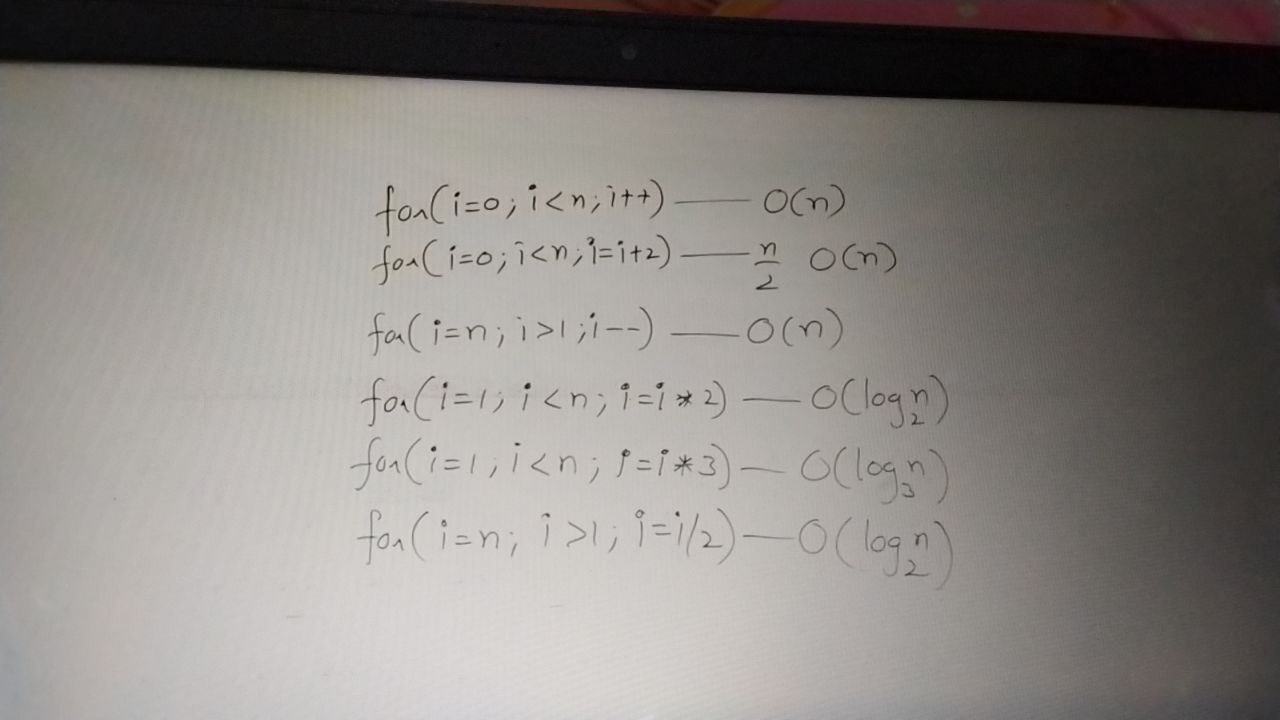 for(i=0; i<n; i++) — O(n)
for(i=0; i<n; i=i+2) — n/2 O(n)
for(i=n; i>1; i--) — O(n)
for(i=1; i<n; i=i*2) — O(log₂n)
for(i=1; i<n; i=i*3) — O(log₃n)
for(i=n; i>1; i=i/2) — O(log₂n)